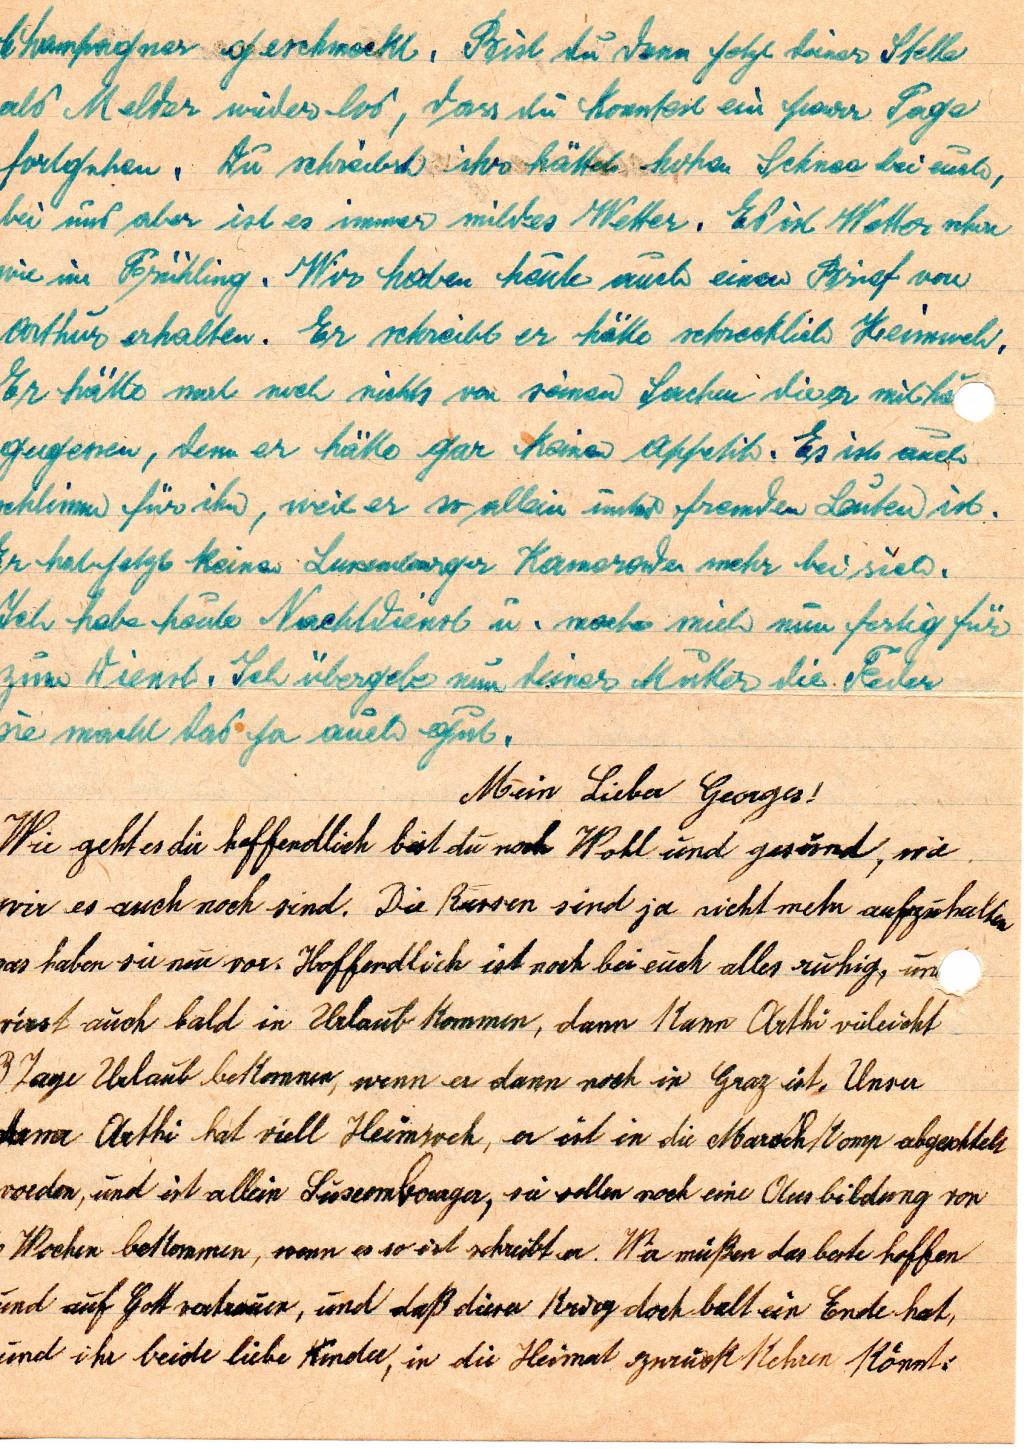 Champagner geschmeckt. Bist du denn jetzt deiner Stelle
als Melder wieder los, dass du konntest ein paar Tage
fortgehen. Du schreibst ihr hättet hohen Schnee bei euch,
bei uns aber ist es immer mildes Wetter. Es ist Wetter schon
wie im Frühling. Wir haben heute auch einen Brief von
Arthur erhalten. Er schreibt er hätte schrecklich Heimweh.
Er hätte noch nichts von seinen Sachen die er mit
gegessen, denn er hätte gar keinen Appetit. Es ist auch
schlimm für ihn, weil er so allein unter fremden Leuten ist.
Er hat jetzt keine Luxemburger Kameraden mehr bei sich.
Ich habe heute Nachtdienst u. mache mich nun fertig für
zum Dienst. Ich übergebe nun deiner Mutter die Feder
sie macht das ja auch gut.
Mein Lieber Georges!
Wie geht es dir hoffendlich bist du noch Wohl und gesund, wie
wir es auch noch sind. Die Russen sind ja nicht mehr aufzuhalten
was haben sie nur vor. Hoffendlich ist noch bei euch alles ruhig, und
wirst auch bald in Urlaub kommen, dann kann Arthi vieleicht
3 Tage Urlaub bekommen, wenn er dann noch in Graz ist. Unser
Arthi hat viell Heimweh, er ist in die Marsch Komp abgeschtelt
worden, und ist allein Luxembourger, sie sollen noch eine Ausbildung von
Wochen bekommen, wenn es so ist schreibt er. Wir müßen das beste hoffen
und auf Gott vertrauen, und daß dieser Krieg doch balt ein Ende hat,
und ihr beide liebe Kinder, in die Heimat zurück Kehren Könnt.